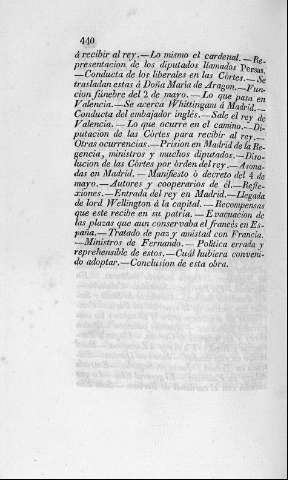 440
á recibir al rey.—Lo mismo el cardenal.—Re-
presentacion de los diputados llamados Persas.
—Conducta de los liberales en las Córtes.—Se
trasladan estas á Doña María de Aragon.—Fun-
cion fúnebre del 2 de mayo.—Lo que pasa en
Valencia.—Se acerca Whittingam á Madrid.—
Conducta del embajador inglés.—Sale el rey de
Valencia.—Lo que ocurre en el camino.—Di-
putacion de las Córtes para recibir al rey.—
Otras ocurrencias.—Prision en Madrid de la Re-
gencia, ministros y muchos diputados.—Diso-
lucion de las Córtes por órden del rey.—Asona-
das en Madrid.—Manifiesto ó decreto del 4 de
mayo.—Autores y cooperarios de él.—Refle-
xiones.—Entrada del rey en Madrid.—Llegada
de lord Wellington á la capital.—Recompensas
que este recibe en su patria.—Evacuacion de
las plazas que aun conservaba el francés en Es-
paña.—Tratado de paz y amistad con Francia.
—Ministros de Fernando.—Política errada y
reprehensible de estos.—Cuál hubiera conveni-
do adoptar.—Conclusion de esta obra.